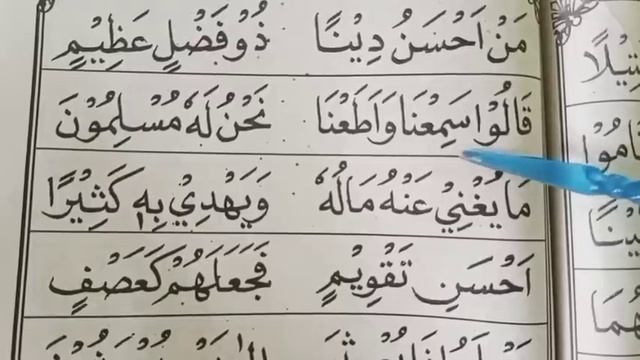 مَنْ اَحْسَنُ دِيْنًا ذُوْ فَضْلٍ عَظِيْمٍ
قَالُوْا سَمِعْنَا وَاَطَعْنَا نَحْنُ لَهٗ مُسْلِمُوْنَ
مَا يُغْنِيْ عَنْهُ مَالُهٗ وَيَهْدِيْ بِهٖ كَثِيْرًا
اَحْسَنِ تَقْوِيْمٍ فَجَعَلَهُمْ كَعَصْفٍ